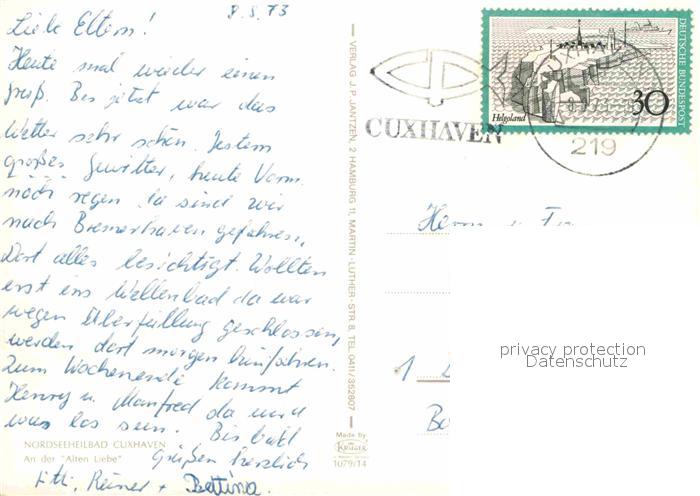 8.8.73
Liebe Eltern!
Heute mal wieder einen
Gruß. Bis jetzt war das
Wetter sehr schön. Gestern
großes Gewitter, heute Vorm.
noch regen da sind wir
nach Bremerhaven gefahren,
Dort alles besichtigt. Wollten
erst ins Wellenbad da war
wegen Überfüllung geschlossen,
werden dort morgen hinfahren.
Zum Wochenende kommt
Henry u. Manfred da wird
was los sein. Bis bald
Grüßen herzlich
Reiner + Bettina.
NORDSEEHEILBAD CUXHAVEN
An der "Alten Liebe"
VERLAG J. P. JANTZEN, 2 HAMBURG 11, MARTIN-LUTHER-STR. 8, TEL. 0411/362807
Made by
KRÜGER
1079/14
CUXHAVEN
219
Helgoland
30
DEUTSCHE BUNDESPOST
Herrn u.
1
privacy protection
Datenschutz